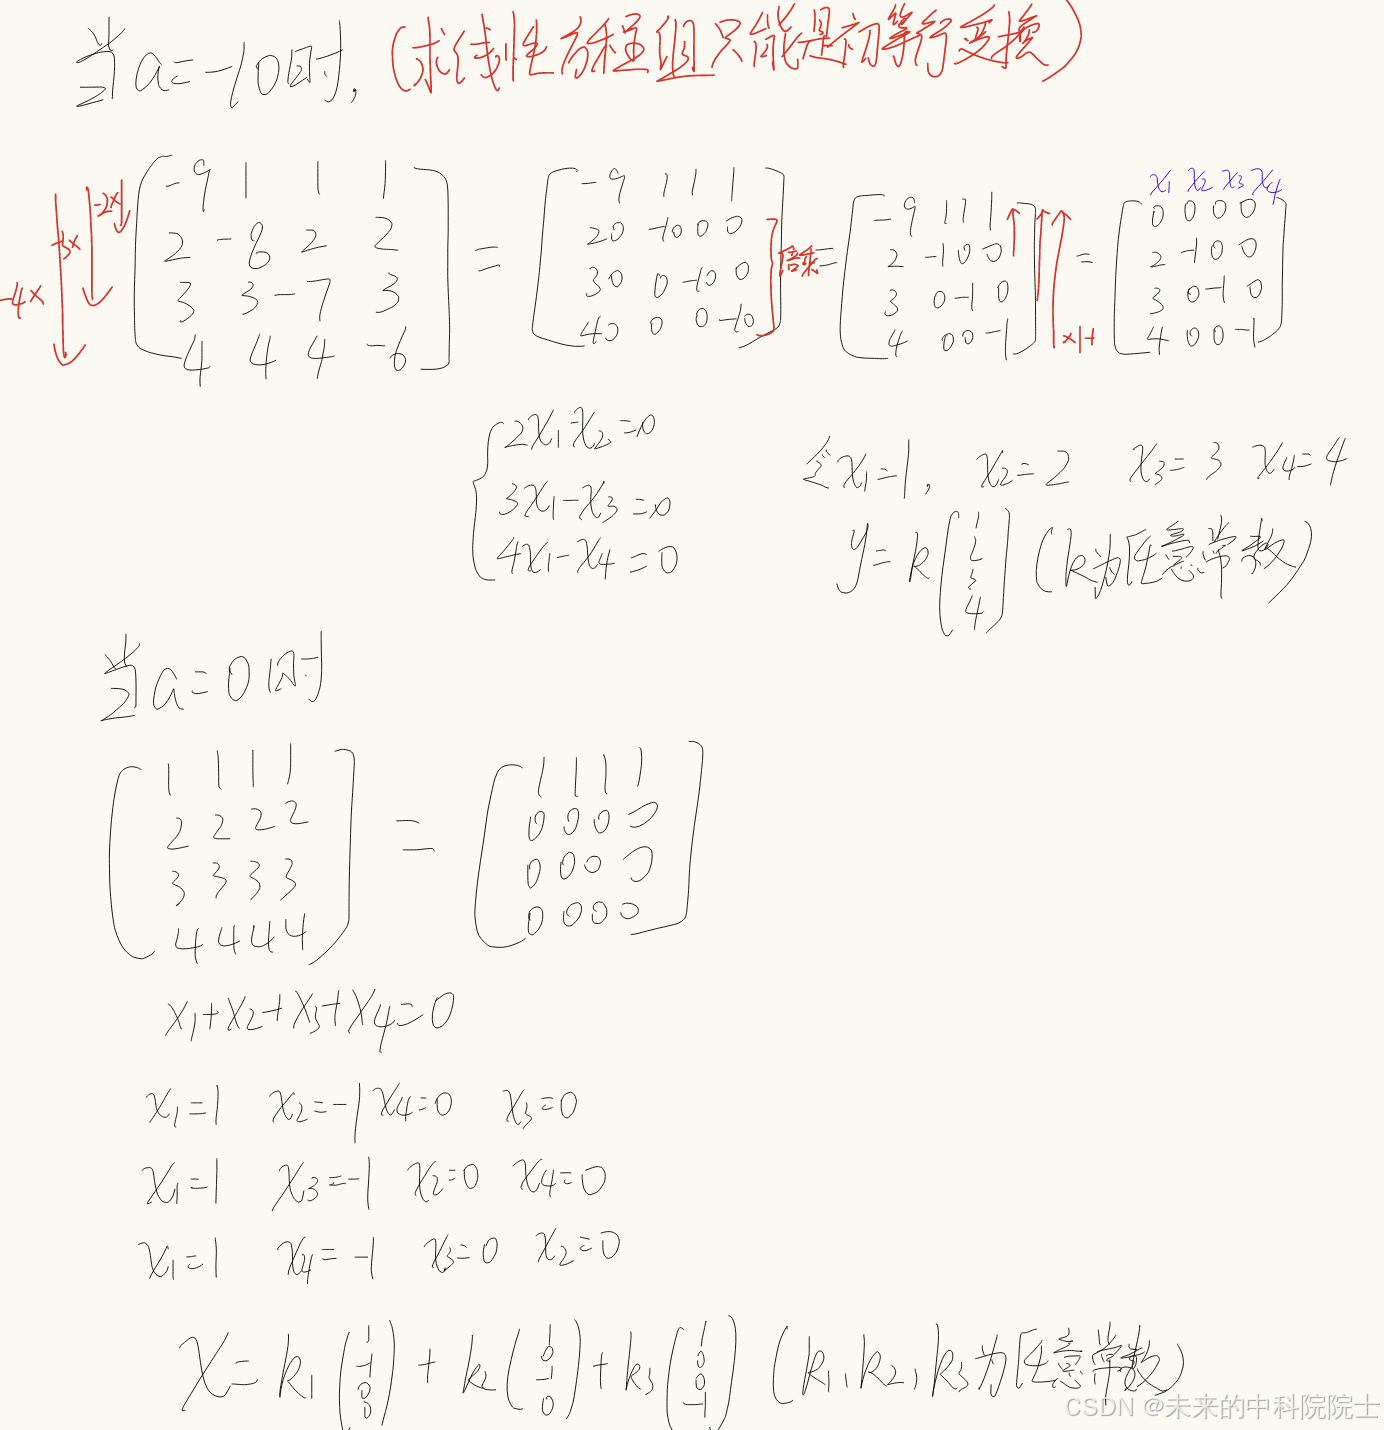 当a=-10时, (求线性方程组只能是初等行变换)
-2x -3x -4x
-9 1 1 1
2 -8 2 2
3 3 -7 3
4 4 4 -6
=
-9 1 1 1
20 -10 0 0
30 0 -10 0
40 0 0 -10
倍乘=
-9 1 1 1
2 -1 0 0
3 0 -1 0
4 0 0 -1
x1+
=
x1 x2 x3 x4
0 0 0 0
2 -1 0 0
3 0 -1 0
4 0 0 -1
2x1-x2=0
3x1-x3=0
4x1-x4=0
令x1=1, x2=2 x3=3 x4=4
y=k(1 2 3 4) (k为任意常数)
当a=0时
1 1 1 1
2 2 2 2
3 3 3 3
4 4 4 4
=
1 1 1 1
0 0 0 0
0 0 0 0
0 0 0 0
x1+x2+x3+x4=0
x1=1 x2=-1 x4=0 x3=0
x1=1 x3=-1 x2=0 x4=0
x1=1 x4=-1 x3=0 x2=0
x=k1(1 -1 0 0)+k2(1 0 -1 0)+k3(1 0 0 -1) (k1,k2,k3为任意常数)
CSDN @未来的中科院院士